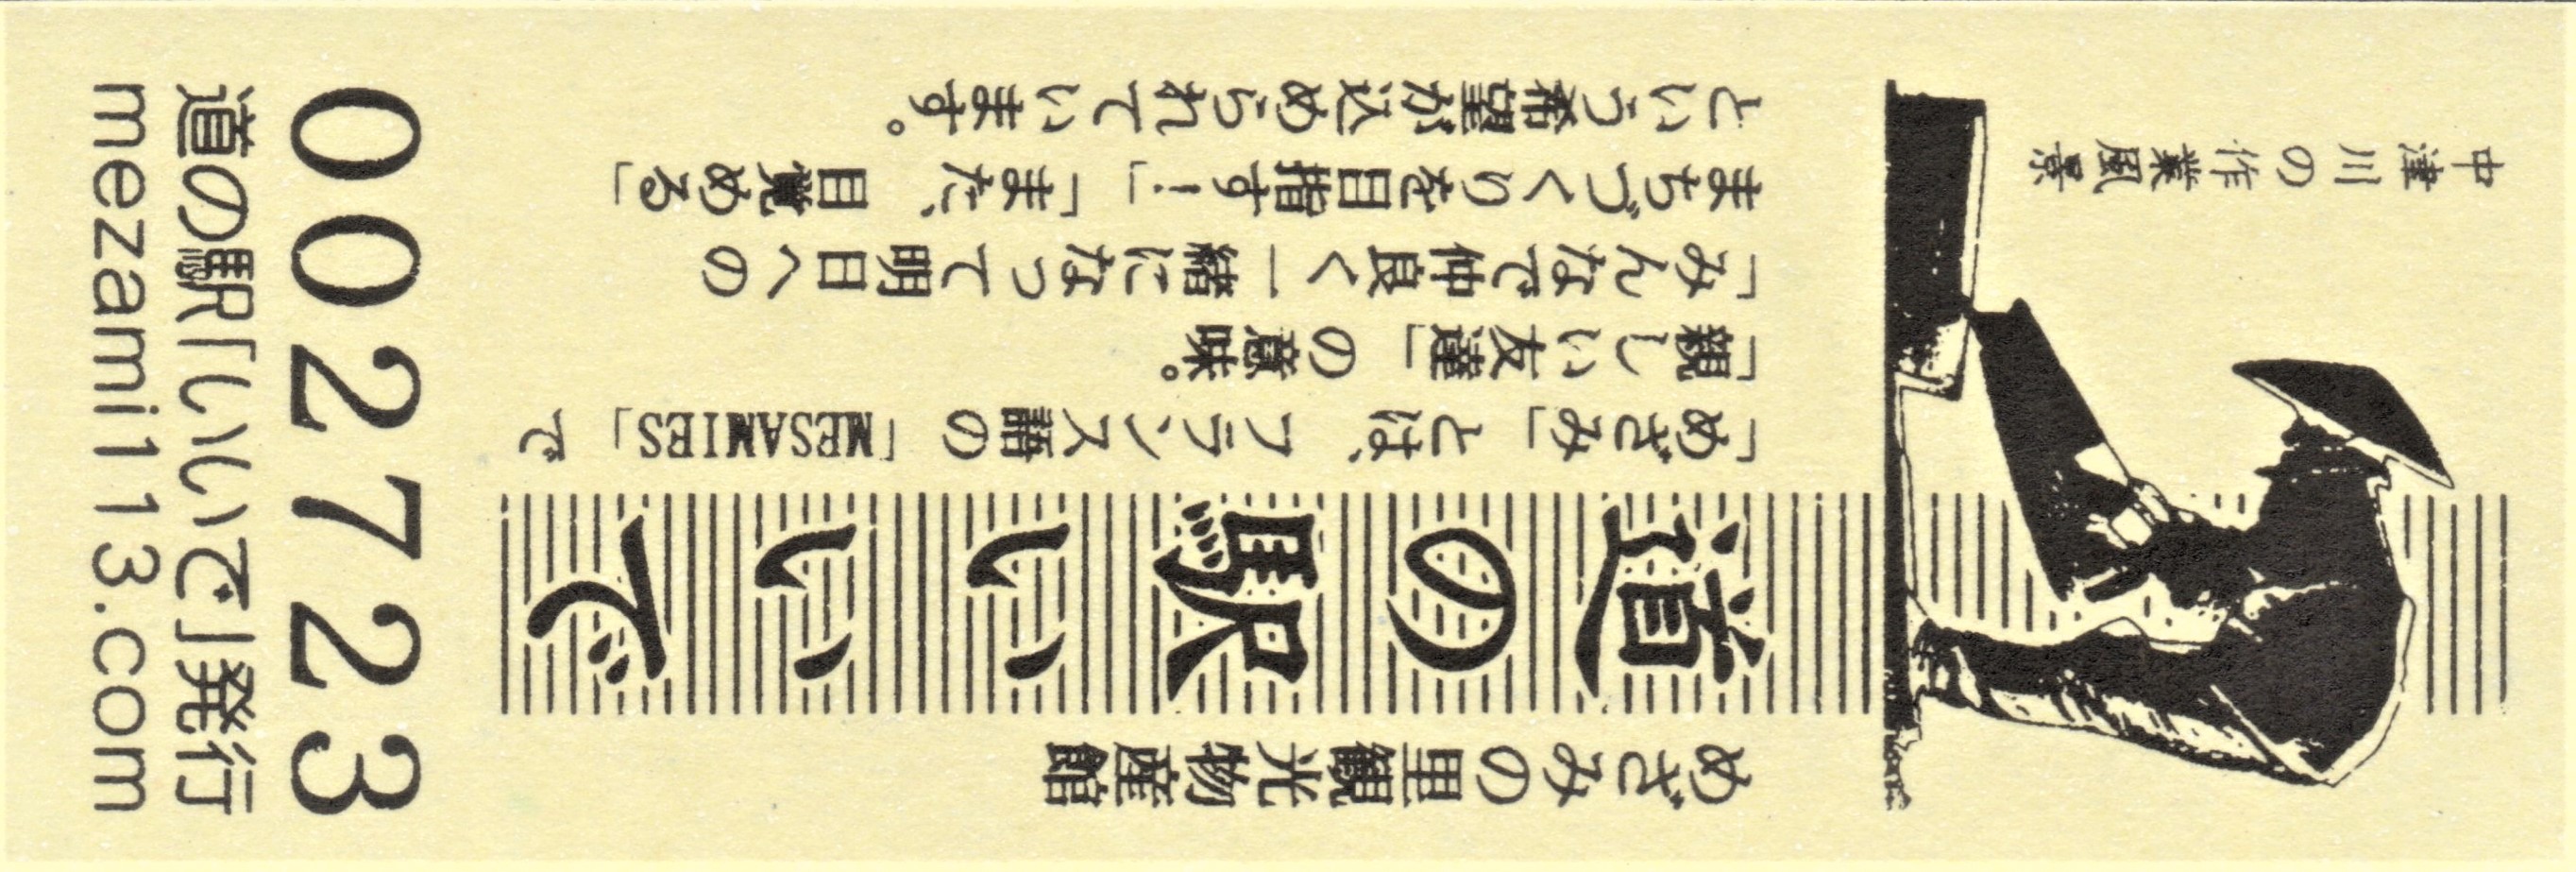 めざみの里観光物産館
道の駅いいで
「めざみ」とは、フランス語の「MESAMIES」で
「親しい友達」の意味。
「みんなで仲良く一緒になって明日への
まちづくりを目指す!」「また、目覚める」
という希望が込められています。
中津川の作業風景
002723
道の駅「いいで」発行
mezami113.com